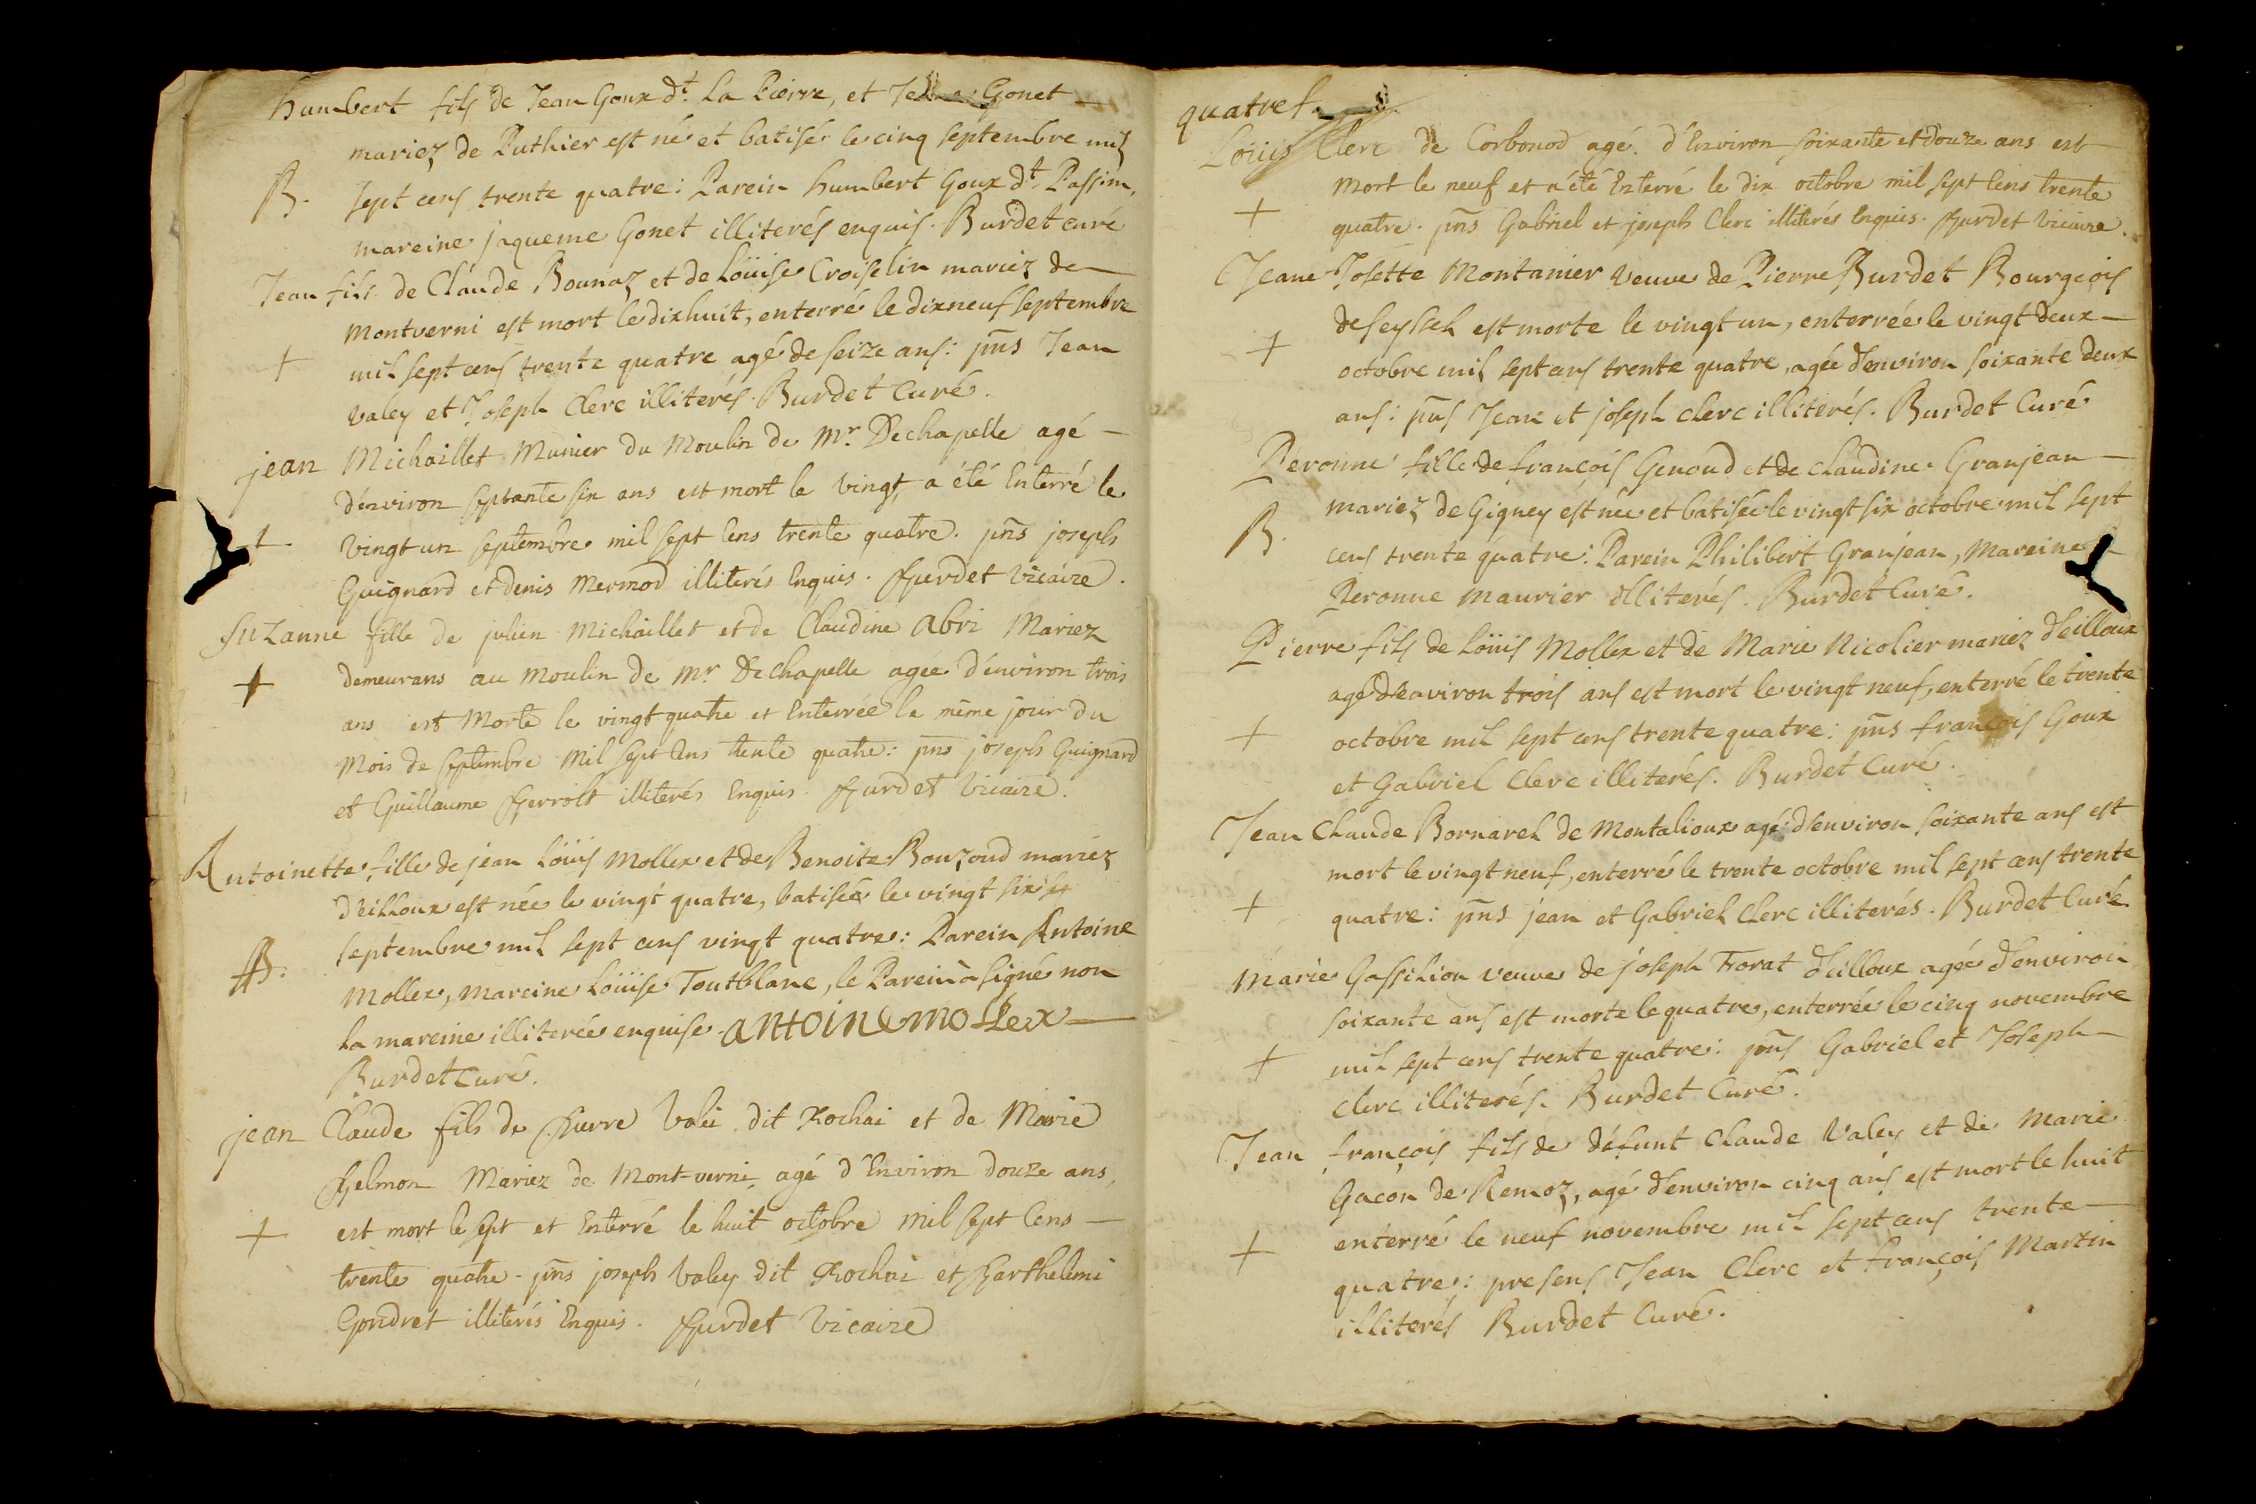 humbert fils de Jean Goux dt. La Pierre, et Gonet
mariez de Puthier est né et batisé le cinq septembre mil
B. sept cens trente quatre: Parein humbert Goux dt. Passim,
mareine jaqueme Gonet illiterés enquis. Burdet curé
Jean fils de Claude Bounaz et de Löuise Croiselin mariez de
Montverni est mort le dixhuit, enterré le dixneuf septembre
+ mil sept cens trente quatre agé de seize ans: pns Jean
Valey et Joseph Clerc illiterés. Burdet Curé.
jean Michaillet Munier du Moulin de Mr. Dechapelle agé
d'environ septante six ans est mort le vingt, a été Enterré le
+ vingt un septembre mil sept Cens trente quatre. pns joseph
Guignard et denis Mermod illiterés Enquis. Burdet Vicaire.
Suzanne fille de julien Michaillet et de Claudine Abri Mariez
+ demeurans au Moulin de Mr Dechapelle agée d'environ trois
ans est Morte le vingt quatre et Enterrée le même jour du
Mois de septembre Mil sept Cens trente quatre: pns joseph Guignard
et Guillaume illiterés Enquis. Burdet Vicaire.
Antoinette fille de jean Löuis Mollex et de Benoite Bouzoud mariez
d'eilloux est née le vingt quatre, batisée le vingt six
B. septembre mil sept cens vingt quatre: Parein Antoine
Mollex, mareine Löuise Toutblanc, le Parein à signé non
la mareine illiterée enquise. ANtoinemollex
Burdet Curé.
jean Claude fils de Pierre Valei dit Rochai et de Marie
Belmon Mariez de Mont-verni, agé d'Environ douze ans,
+ est mort le sept et Enterré le huit octobre Mil sept Cens
trente quatre. pns joseph Valey dit Rochai et Barthelemi
Gondret illiterés Enquis. Burdet Vicaire
quatre
Löuis Clerc de Corbonod agé d'Environ soixante et douze ans est
Mort le neuf et a été Enterré le dix octobre mil sept Cens trente
+ quatre. pns Gabriel et joseph Clerc illiterés Enquis. Burdet Vicaire.
Jeane Josette Montanier veuve de Pierre Burdet Bourgeois
de seyssel est morte le vingt un, enterrée le vingt deux
+ octobre mil sept cens trente quatre, agée d'environ soixante deux
ans: pns Jean et joseph Clerc illiterés. Burdet Curé
Peronne fille de françois Genoud et de Claudine Granjean
mariez de Gigney est née et batisée le vingt six octobre mil sept
B. cens trente quatre: Parein Philibert Granjean, Mareine
Peronne Maurier illiterés. Burdet Curé.
Pierre fils de Löuis Mollex et de Marie Nicolier mariez d'eilloux
agé d'environ trois ans est mort le vingt neuf, enterré le trente
+ octobre mil sept cens trente quatre: pns françois Goux
et Gabriel Clerc illiterés. Burdet Curé.
Jean Claude Bornarel de Montalioux agé d'environ soixante ans est
mort le vingt neuf, enterré le trente octobre mil sept cens trente
+ quatre: pns jean et Gabriel Clerc illiterés. Burdet Curé
Marie Gassilion veuve de joseph Trovat d'eilloux agée d'environ
soixante ans est morte le quatre, enterrée le cinq novembre
+ mil sept cens trente quatre: pns Gabriel et Joseph
Clerc illiterés. Burdet Curé.
Jean françois fils de défunt Claude Valey et de Marie
Gacon de Remoz, agé d'environ cinq ans est mort le huit
+ enterré le neuf novembre mil sept cens trente
quatre: presens Jean Clerc et françois Martin
illiterés Burdet Curé.